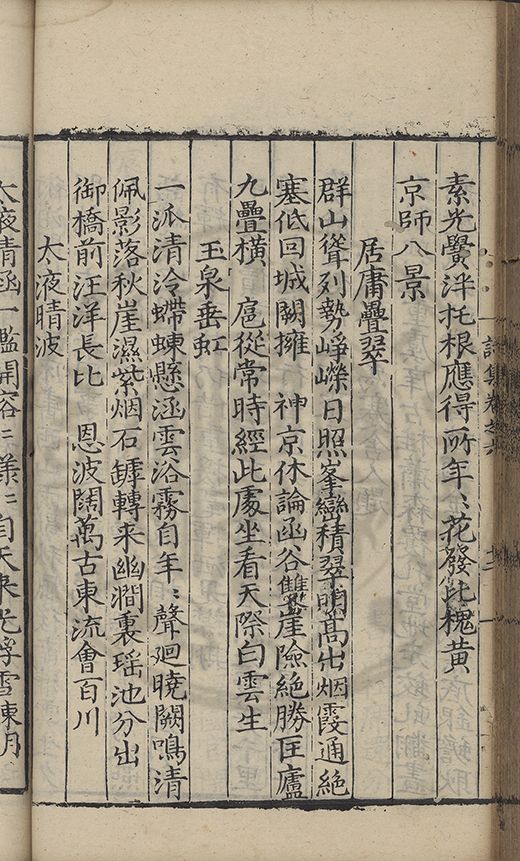 素光黌泮托根應得所年〻花發比槐黄
京師八景
居庸疊翠
群山聳列勢崢嶸日照峯巒積翠明高出烟霞通絶
塞低回城闕擁 神京休論函谷雙崖險絶勝匡廬
九疊横 扈從常時經此處坐看天際白雲生
玉泉垂虹
一派清泠螮蝀懸涵雲浴霧自年〻聲廻曉闕鳴清
佩影落秋崖濕紫烟石罅轉来幽澗裏瑶池分出
御橋前汪洋長比 恩波闊萬古東流會百川
太液晴波
太液清涵一鑑開容〻漾〻自天来光浮雪練月
詩集卷之六